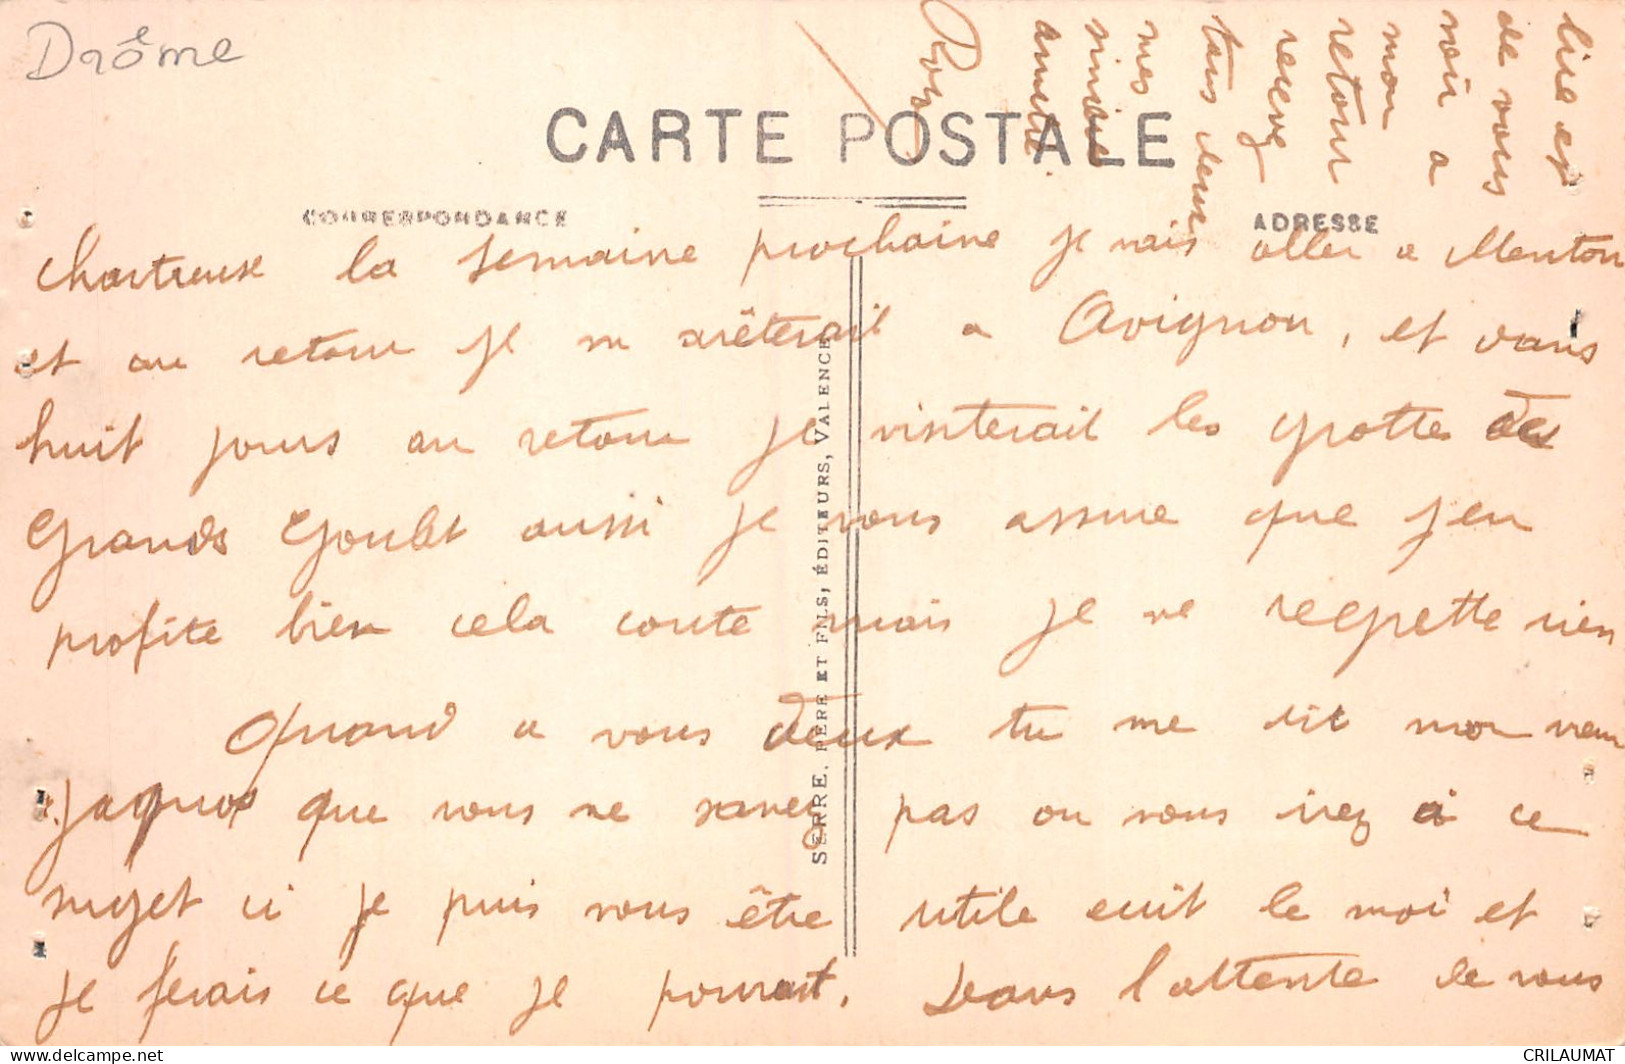 Drôme
CARTE POSTALE
CORRESPONDANCE
ADRESSE
chartreuse la semaine prochaine je vais aller a Menton
et au retour je m arêterait a Avignon, et dans
huit jours au retour je visiterait les grottes des
Grands Goulet aussi je vous assure que j'en
profite bien cela coute mais je ne regrette rien
Quand a vous deux tu me dit mon vieux
Jaques que vous ne savez pas ou vous irez à ce
sujet si je puis vous être utile ecrit le moi et
je ferais ce que je pourrait. Dans l'attente de vous
lire et
de vous
voir a
mon
retour
recevez
tous deux
mes
amitié.
SERRE, PÈRE ET FILS, ÉDITEURS, VALENCE
CRILAUMAT